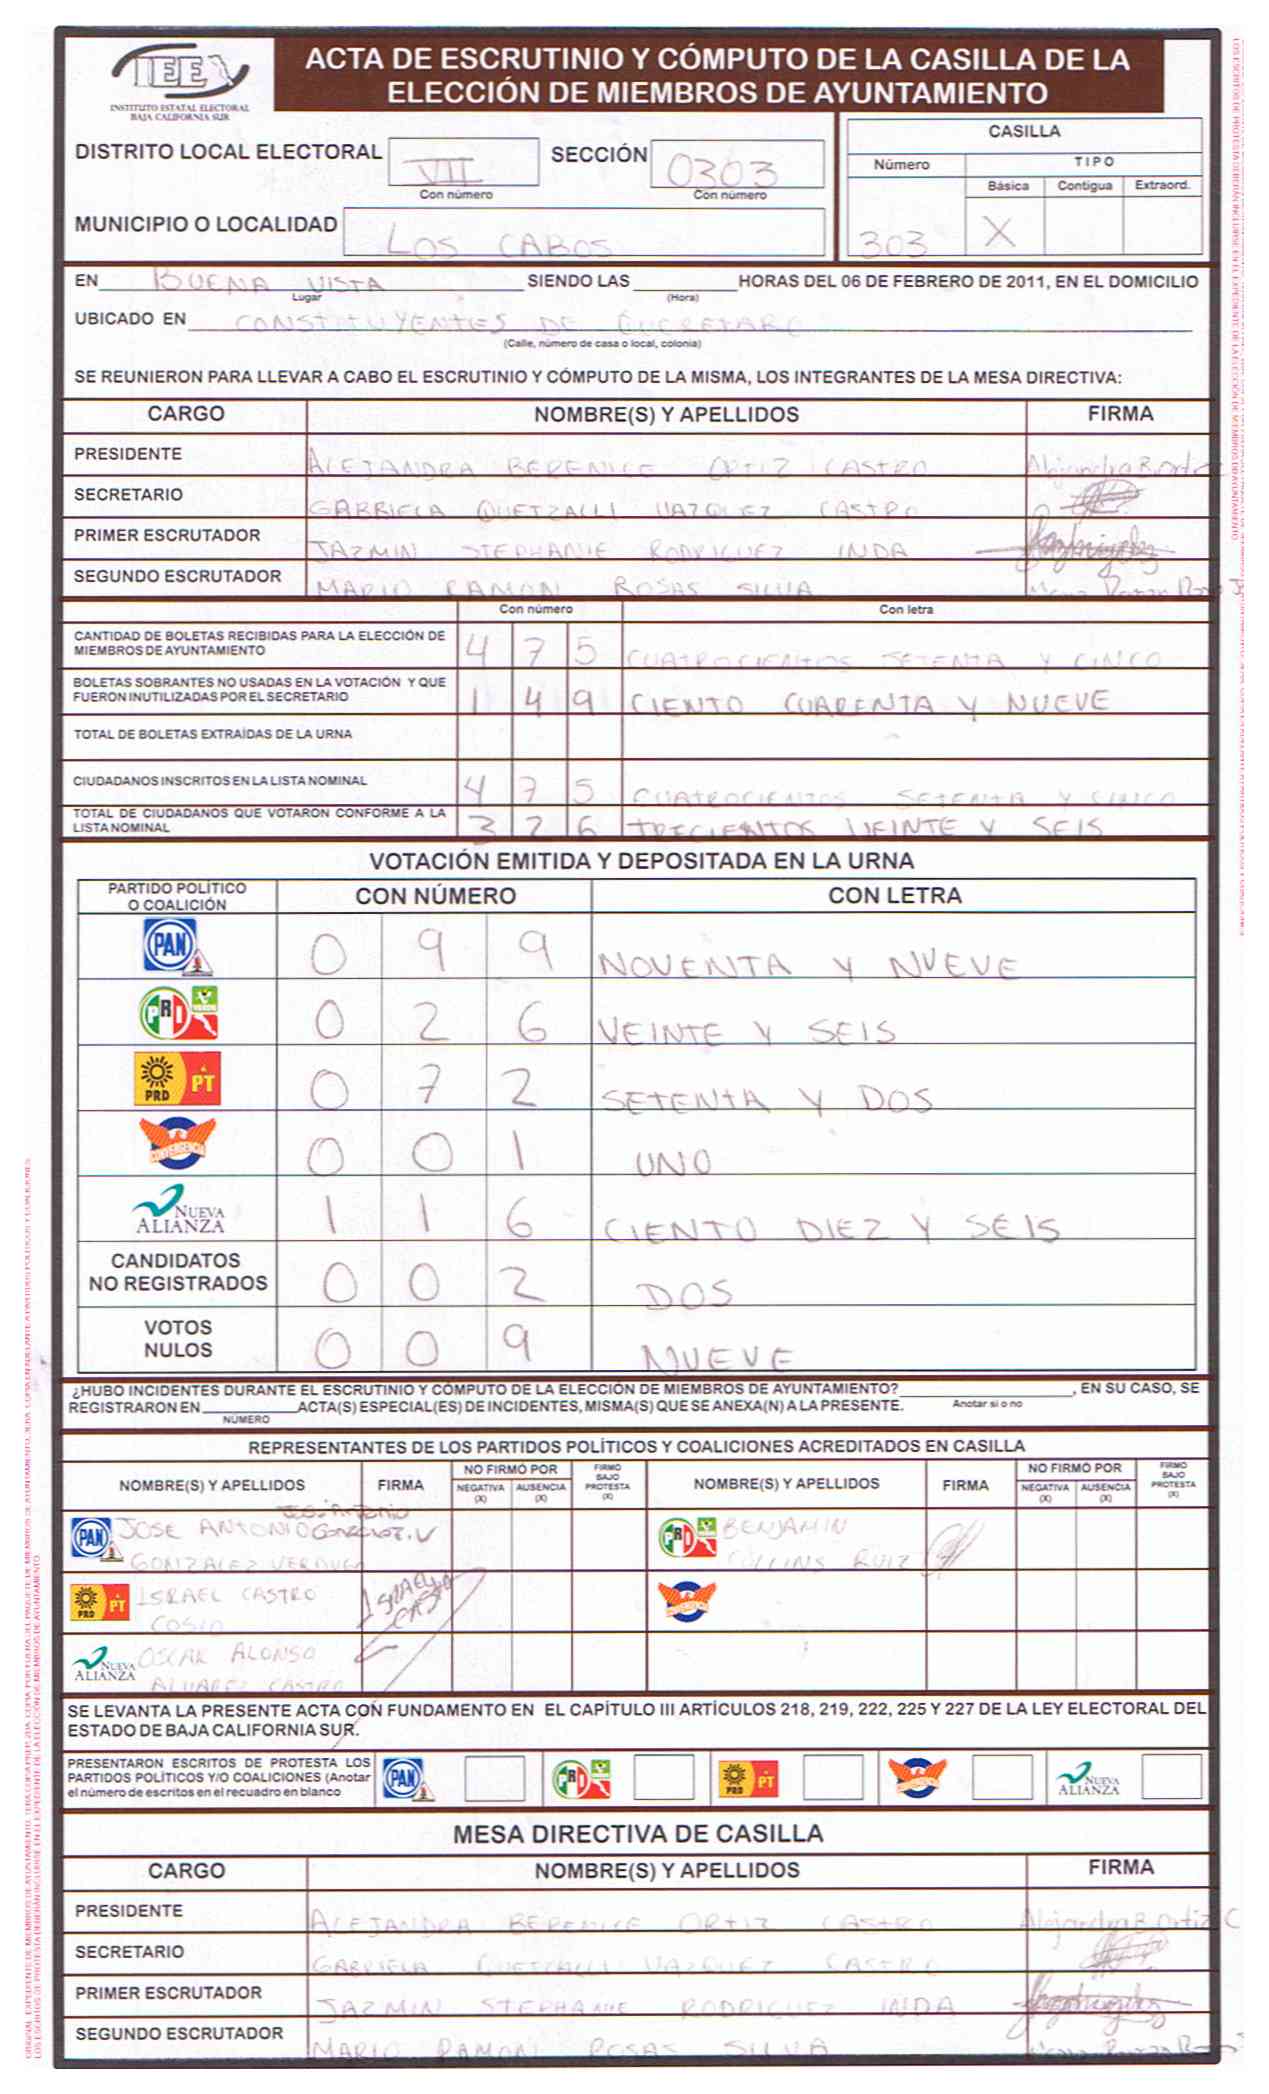 IEE
INSTITUTO ESTATAL ELECTORAL
BAJA CALIFORNIA SUR
ACTA DE ESCRUTINIO Y CÓMPUTO DE LA CASILLA DE LA
ELECCIÓN DE MIEMBROS DE AYUNTAMIENTO
DISTRITO LOCAL ELECTORAL VII SECCIÓN 0303
Con número Con número
MUNICIPIO O LOCALIDAD LOS CABOS
CASILLA
Número TIPO
Básica Contigua Extraord.
303 X
EN BUENA VISTA SIENDO LAS HORAS DEL 06 DE FEBRERO DE 2011, EN EL DOMICILIO
Lugar (Hora)
UBICADO EN CONSTITUYENTES DE QUERETARO
(Calle, número de casa o local, colonia)
SE REUNIERON PARA LLEVAR A CABO EL ESCRUTINIO Y CÓMPUTO DE LA MISMA, LOS INTEGRANTES DE LA MESA DIRECTIVA:
CARGO NOMBRE(S) Y APELLIDOS FIRMA
PRESIDENTE ALEJANDRA BERENICE ORTIZ CASTRO Alejandra B. Ortiz C
SECRETARIO GABRIELA QUETZALLI VAZQUEZ CASTRO
PRIMER ESCRUTADOR JAZMIN STEPHANIE RODRIGUEZ INDA
SEGUNDO ESCRUTADOR MARIO RAMON ROSAS SILVA
Con número Con letra
CANTIDAD DE BOLETAS RECIBIDAS PARA LA ELECCIÓN DE
MIEMBROS DE AYUNTAMIENTO 4 7 5 CUATROCIENTOS SETENTA Y CINCO
BOLETAS SOBRANTES NO USADAS EN LA VOTACIÓN Y QUE
FUERON INUTILIZADAS POR EL SECRETARIO 1 4 9 CIENTO CUARENTA Y NUEVE
TOTAL DE BOLETAS EXTRAÍDAS DE LA URNA
CIUDADANOS INSCRITOS EN LA LISTA NOMINAL 4 7 5 CUATROCIENTOS SETENTA Y CINCO
TOTAL DE CIUDADANOS QUE VOTARON CONFORME A LA
LISTA NOMINAL 3 2 6 TRECIENTOS VEINTE Y SEIS
VOTACIÓN EMITIDA Y DEPOSITADA EN LA URNA
PARTIDO POLÍTICO
O COALICIÓN CON NÚMERO CON LETRA
PAN 0 9 9 NOVENTA Y NUEVE
PRI VERDE 0 2 6 VEINTE Y SEIS
PRD PT 0 7 2 SETENTA Y DOS
CONVERGENCIA 0 0 1 UNO
NUEVA
ALIANZA 1 1 6 CIENTO DIEZ Y SEIS
CANDIDATOS
NO REGISTRADOS 0 0 2 DOS
VOTOS
NULOS 0 0 9 NUEVE
¿HUBO INCIDENTES DURANTE EL ESCRUTINIO Y CÓMPUTO DE LA ELECCIÓN DE MIEMBROS DE AYUNTAMIENTO? , EN SU CASO, SE
REGISTRARON EN ACTA(S) ESPECIAL(ES) DE INCIDENTES, MISMA(S) QUE SE ANEXA(N) A LA PRESENTE. Anotar si o no
NÚMERO
REPRESENTANTES DE LOS PARTIDOS POLÍTICOS Y COALICIONES ACREDITADOS EN CASILLA
NOMBRE(S) Y APELLIDOS FIRMA NO FIRMÓ POR NEGATIVA (X) AUSENCIA (X) FIRMO BAJO PROTESTA (X) NOMBRE(S) Y APELLIDOS FIRMA NO FIRMÓ POR NEGATIVA (X) AUSENCIA (X) FIRMO BAJO PROTESTA (X)
PAN JOSE ANTONIO José Antonio Gonzalez. V PRI BENJAMIN
GONZALEZ VERDUGO COLLINS RUIZ
PRD PT ISRAEL CASTRO ISRAEL CAS CONVERGENCIA
COSIO
NUEVA ALIANZA OSCAR ALONSO
ALVAREZ CASTRO
SE LEVANTA LA PRESENTE ACTA CON FUNDAMENTO EN EL CAPÍTULO III ARTÍCULOS 218, 219, 222, 225 Y 227 DE LA LEY ELECTORAL DEL
ESTADO DE BAJA CALIFORNIA SUR.
PRESENTARON ESCRITOS DE PROTESTA LOS
PARTIDOS POLÍTICOS Y/O COALICIONES (Anotar
el número de escritos en el recuadro en blanco
PAN PRI PRD PT CONVERGENCIA NUEVA ALIANZA
MESA DIRECTIVA DE CASILLA
CARGO NOMBRE(S) Y APELLIDOS FIRMA
PRESIDENTE ALEJANDRA BERENICE ORTIZ CASTRO Alejandra B. Ortiz C
SECRETARIO GABRIELA QUETZALLI VAZQUEZ CASTRO
PRIMER ESCRUTADOR JAZMIN STEPHANIE RODRIGUEZ INDA
SEGUNDO ESCRUTADOR MARIO RAMON ROSAS SILVA